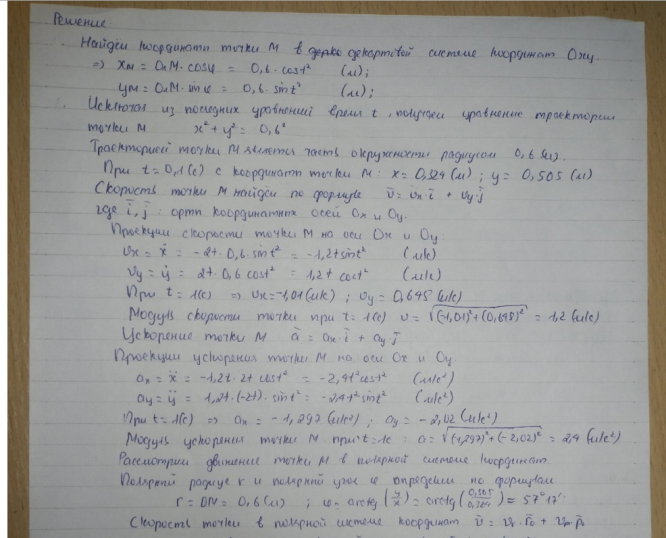 Решение.
Найдём координаты точки М в декартовой системе координат Oxy.
⇒ xм = ОМ · cosφ = 0,6 · cost² (м);
yм = ОМ · sinφ = 0,6 · sint² (м);
Исключая из последних уравнений время t, получаем уравнение траектории
точки М x² + y² = 0,6²
Траекторией точки М является часть окружности радиусом 0,6 (м).
При t = 0,1 (с) с координат точки М: x = 0,324 (м); y = 0,505 (м)
Скорость точки М найдём по формуле v̄ = vx·ī + vy·j̄
где ī, j̄ : орты координатных осей Ox и Oy.
Проекции скорости точки М на оси Ox и Oy.
vx = ẋ = -2t · 0,6 sint² = -1,2t sint² (м/с)
vy = ẏ = 2t · 0,6 cost² = 1,2t cost² (м/с)
При t = 1(с) ⇒ vx = -1,01 (м/с) ; vy = 0,648 (м/с)
Модуль скорости точки при t = 1(с) v = √((-1,01)² + (0,648)²) = 1,2 (м/с)
Ускорение точки М ā = ax·ī + ay·j̄
Проекции ускорения точки М на оси Ox и Oy
ax = ẍ = -1,2t · 2t cost² = -2,4t² cost² (м/с²)
ay = ÿ = 1,2t·(-2t)·sint² = -2,4t² sint² (м/с²)
При t = 1(с) ⇒ ax = -1,297 (м/с²) ; ay = -2,02 (м/с²)
Модуль ускорения точки М при t = 1с : a = √((-1,297)² + (-2,02)²) = 2,4 (м/с²)
Рассмотрим движение точки М в полярной системе координат.
Полярный радиус r и полярный угол φ определим по формулам
r = ОМ = 0,6 (м) ; φ = arctg(y/x) = arctg(0,505/0,324) ≈ 57°17'
Скорость точки в полярной системе координат v̄ = vr · r̄₀ + vp · p̄₀